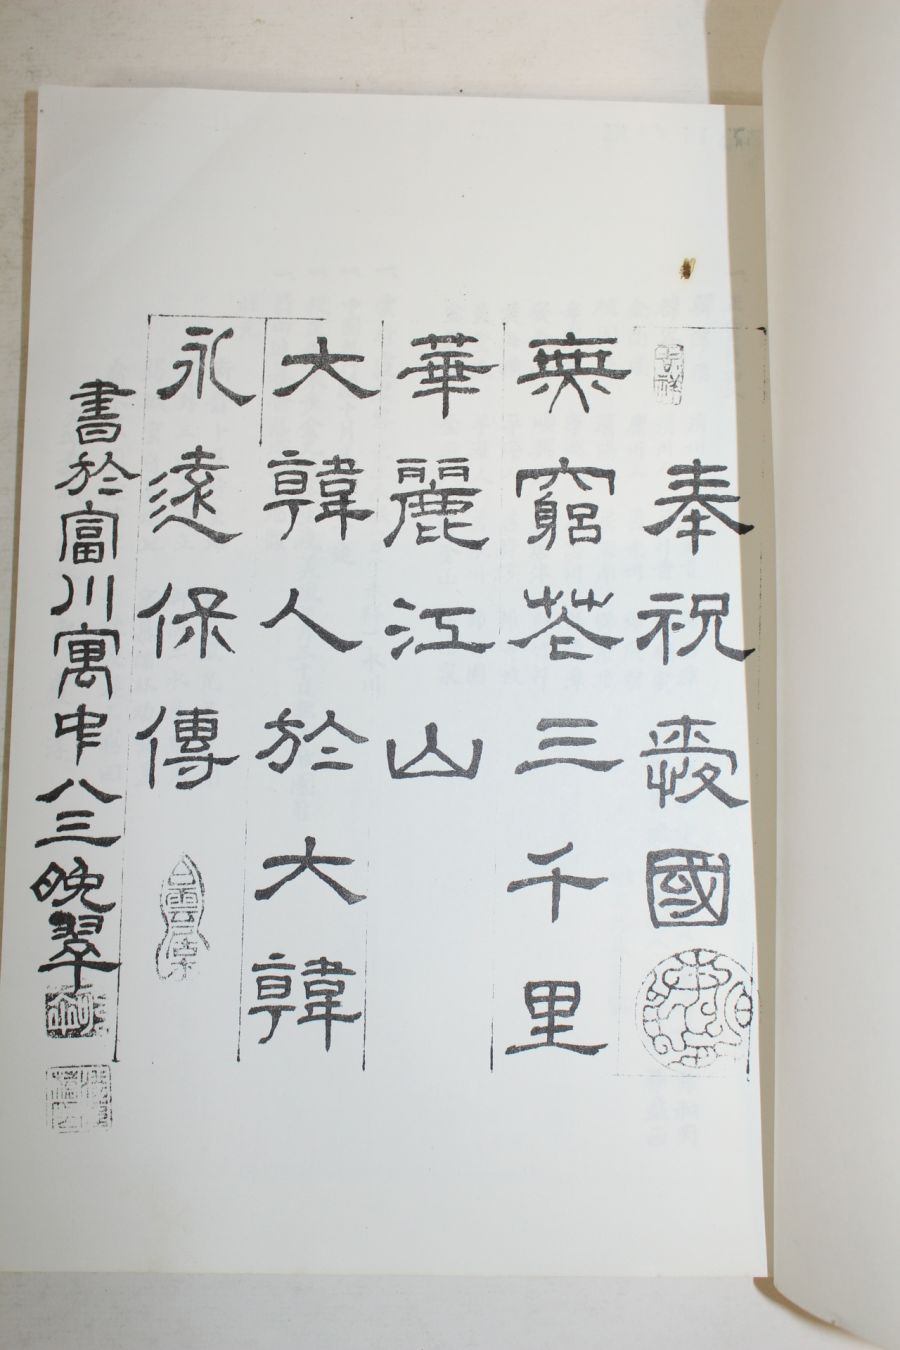 奉祝愛國
無窮花三千里
華麗江山
大韓人於大韓
永遠保傳
書於富川寓中八三晩翠